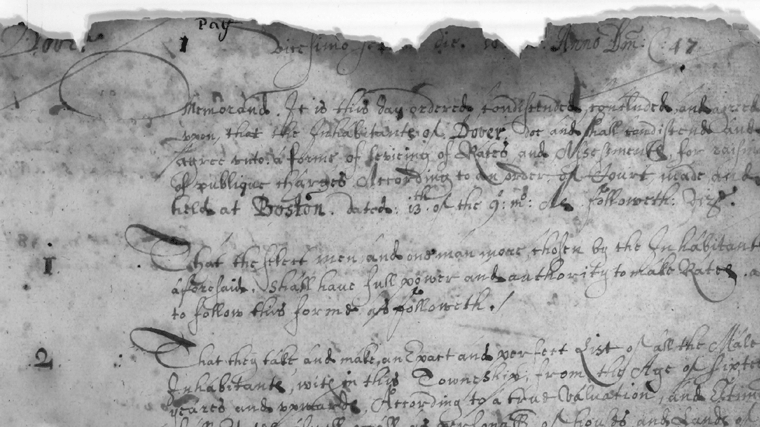 Pay
1
Anno Dm: 47
Memorand. It is this day ordered, condissended, concluded, and agreed
upon, that the Inhabitants of Dover doe and shall condissend and
agree unto: a forme of levieing of Rates and Assesments, for raising
of publique charges According to an order of Court made and
held at Boston. dated: 13th of the 9: mo: As followeth: vizs.
1
That the select men and one man more chosen by the Inhabitants
aforesaid. shall have full power and authority to make Rates. a
to follow this forme as followeth. /
2
That they take and make, an Exact and perfect List of all the Male
Inhabitants, with in this Towneship, from the Age of sixte
yeares and upwards, According to a true valuation, and
of houses and Lands of